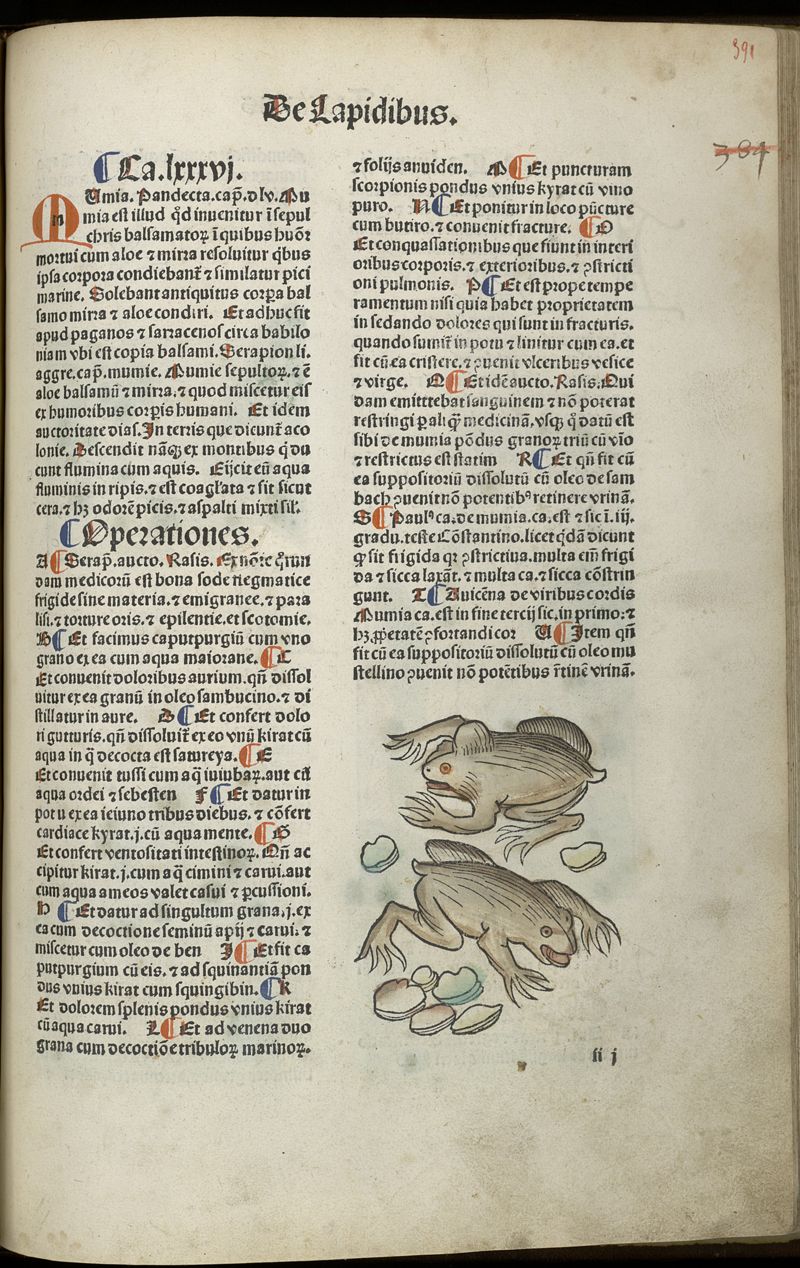 391
De Lapidibus.
384
¶ Ca. lxxxvj.
MUmia. Pandecta. cap̃. dlv. Mu
mia est illud qd̃ inuenitur ĩ sepul
chris balsamatoꝝ ĩ quibus huõꝝ
mortui cum aloe ⁊ mirra resoluitur qͥbus
ipsa corpora condiebant̃ ⁊ similatur pici
marine. Solebant antiquitus corp̃a bal
samo mirra ⁊ aloe condiri. Et adhuc fit
apud paganos ⁊ sarracenos circa babilo
niam vbi est copia balsami. Serapion li.
aggre. cap̃. mumie. Mumie sepultoꝝ. ⁊ ẽ
aloe balsamũ ⁊ mirra. ⁊ quod miscetur eis
ex humoribus corp̃is humani. Et idem
auctoritate dias. In terris que dicunt̃ aco
lonie. Descendit nãqꝫ ex montibus q̃ du
cunt flumina cum aquis. Eijcit eũ aqua
fluminis in ripis. ⁊ est coagl̃ata ⁊ fit sicut
cera. ⁊ hꝫ odorẽ picis. ⁊ aspalti mixti sil̃.
¶ Operationes.
A ¶ Serap̃. aucto. Rasis. Ex nõĩe q̃run
dam medicorũ est bona sode riegmatice
frigide sine materia. ⁊ emigranee. ⁊ para
lisi. ⁊ torture oris. ⁊ epilentie. et scotomie.
B ¶ Et facimus caputpurgiũ cum vno
grano ex ea cum aqua maiorane. ¶ C
Et conuenit doloribus aurium. qñ dissol
uitur ex ea granũ in oleo sambucino. ⁊ di
stillatur in aure. D ¶ Et confert dolo
ri gutturis. qñ dissoluit̃ ex eo vnũ kirat cũ
aqua in q̃ decocta est satureya. ¶ E
Et conuenit tussi cum aq̃ iuiubaꝝ. aut cũ
aqua ordei ⁊ sebesten F ¶ Et datur in
potu ex ea ieiuno tribus diebus. ⁊ cõfert
cardiace kyrat. j. cũ aqua mente. ¶ G
Et confert ventositati intestinoꝝ. Qñ ac
cipitur kirat. j. cum aq̃ cimini ⁊ carui. aut
cum aqua ameos valet casui ⁊ ꝑcussioni.
H ¶ Et datur ad singultum grana. j. ex
ea cum decoctione seminũ apij ⁊ carui. ⁊
miscetur cum oleo de ben I ¶ Et fit ca
putpurgium cũ eis. ⁊ ad squinantiã pon
dus vnius kirat cum squingibin. ¶ K
Et dolorem splenis pondus vnius kirat
cũ aqua carui. L ¶ Et ad venena duo
grana cum decoctiõe tribuloꝝ marinoꝝ.
⁊ folijs anuiden. M ¶ Et puncturam
scorpionis pondus vnius kyrat cũ vino
puro. N ¶ Et ponitur in loco pũcture
cum butiro. ⁊ conuenit fracture. ¶ O
Et conquassationibus que fiunt in interi
oribus corporis. ⁊ exterioribus. ⁊ ꝯstricti
oni pulmonis. P ¶ Et est prope tempe
ramentum nisi quia habet proprietatem
in sedando dolores qui sunt in fracturis.
quando sumit̃ in potu ⁊ linitur cum ea. et
fit cũ ea cristere. ⁊ ꝯuenit vlceribus vesice
⁊ virge. Q ¶ Et idẽ aucto. Rasis. Qui
dam emitttebat sanguinem ⁊ nõ poterat
restringi ꝑ aliq̃ꝫ medicinã. vsqꝫ q̃ datũ est
sibi de mumia põdus granoꝝ triũ cũ vĩo
⁊ restrictus est statim R ¶ Et qñ fit cũ
ea suppositoriũ dissolutũ cũ oleo de sam
bach ꝯuenit nõ potentibꝰ retinere vrinã.
S ¶ Paulꝰ ca. de mumia. ca. est ⁊ sic̃ ĩ. iij.
gradu. teste Cõstantino. licet qͥdã dicunt
ꝙ sit frigida qꝛ ꝯstrictiua. multa em̃ frigi
da ⁊ sicca laxãt. ⁊ multa ca. ⁊ sicca cõstrin
gunt. T ¶ Auicẽna de viribus cordis
Mumia ca. est in fine tercij sic. in primo. ⁊
hꝫ ꝓp̃etatẽ ꝯfortandi cor V ¶ Item qñ
fit cũ ea suppositoriũ dissolutũ cũ oleo mu
stellino ꝯuenit nõ potẽtibus r̃tinẽ vrinã.
ſſ j